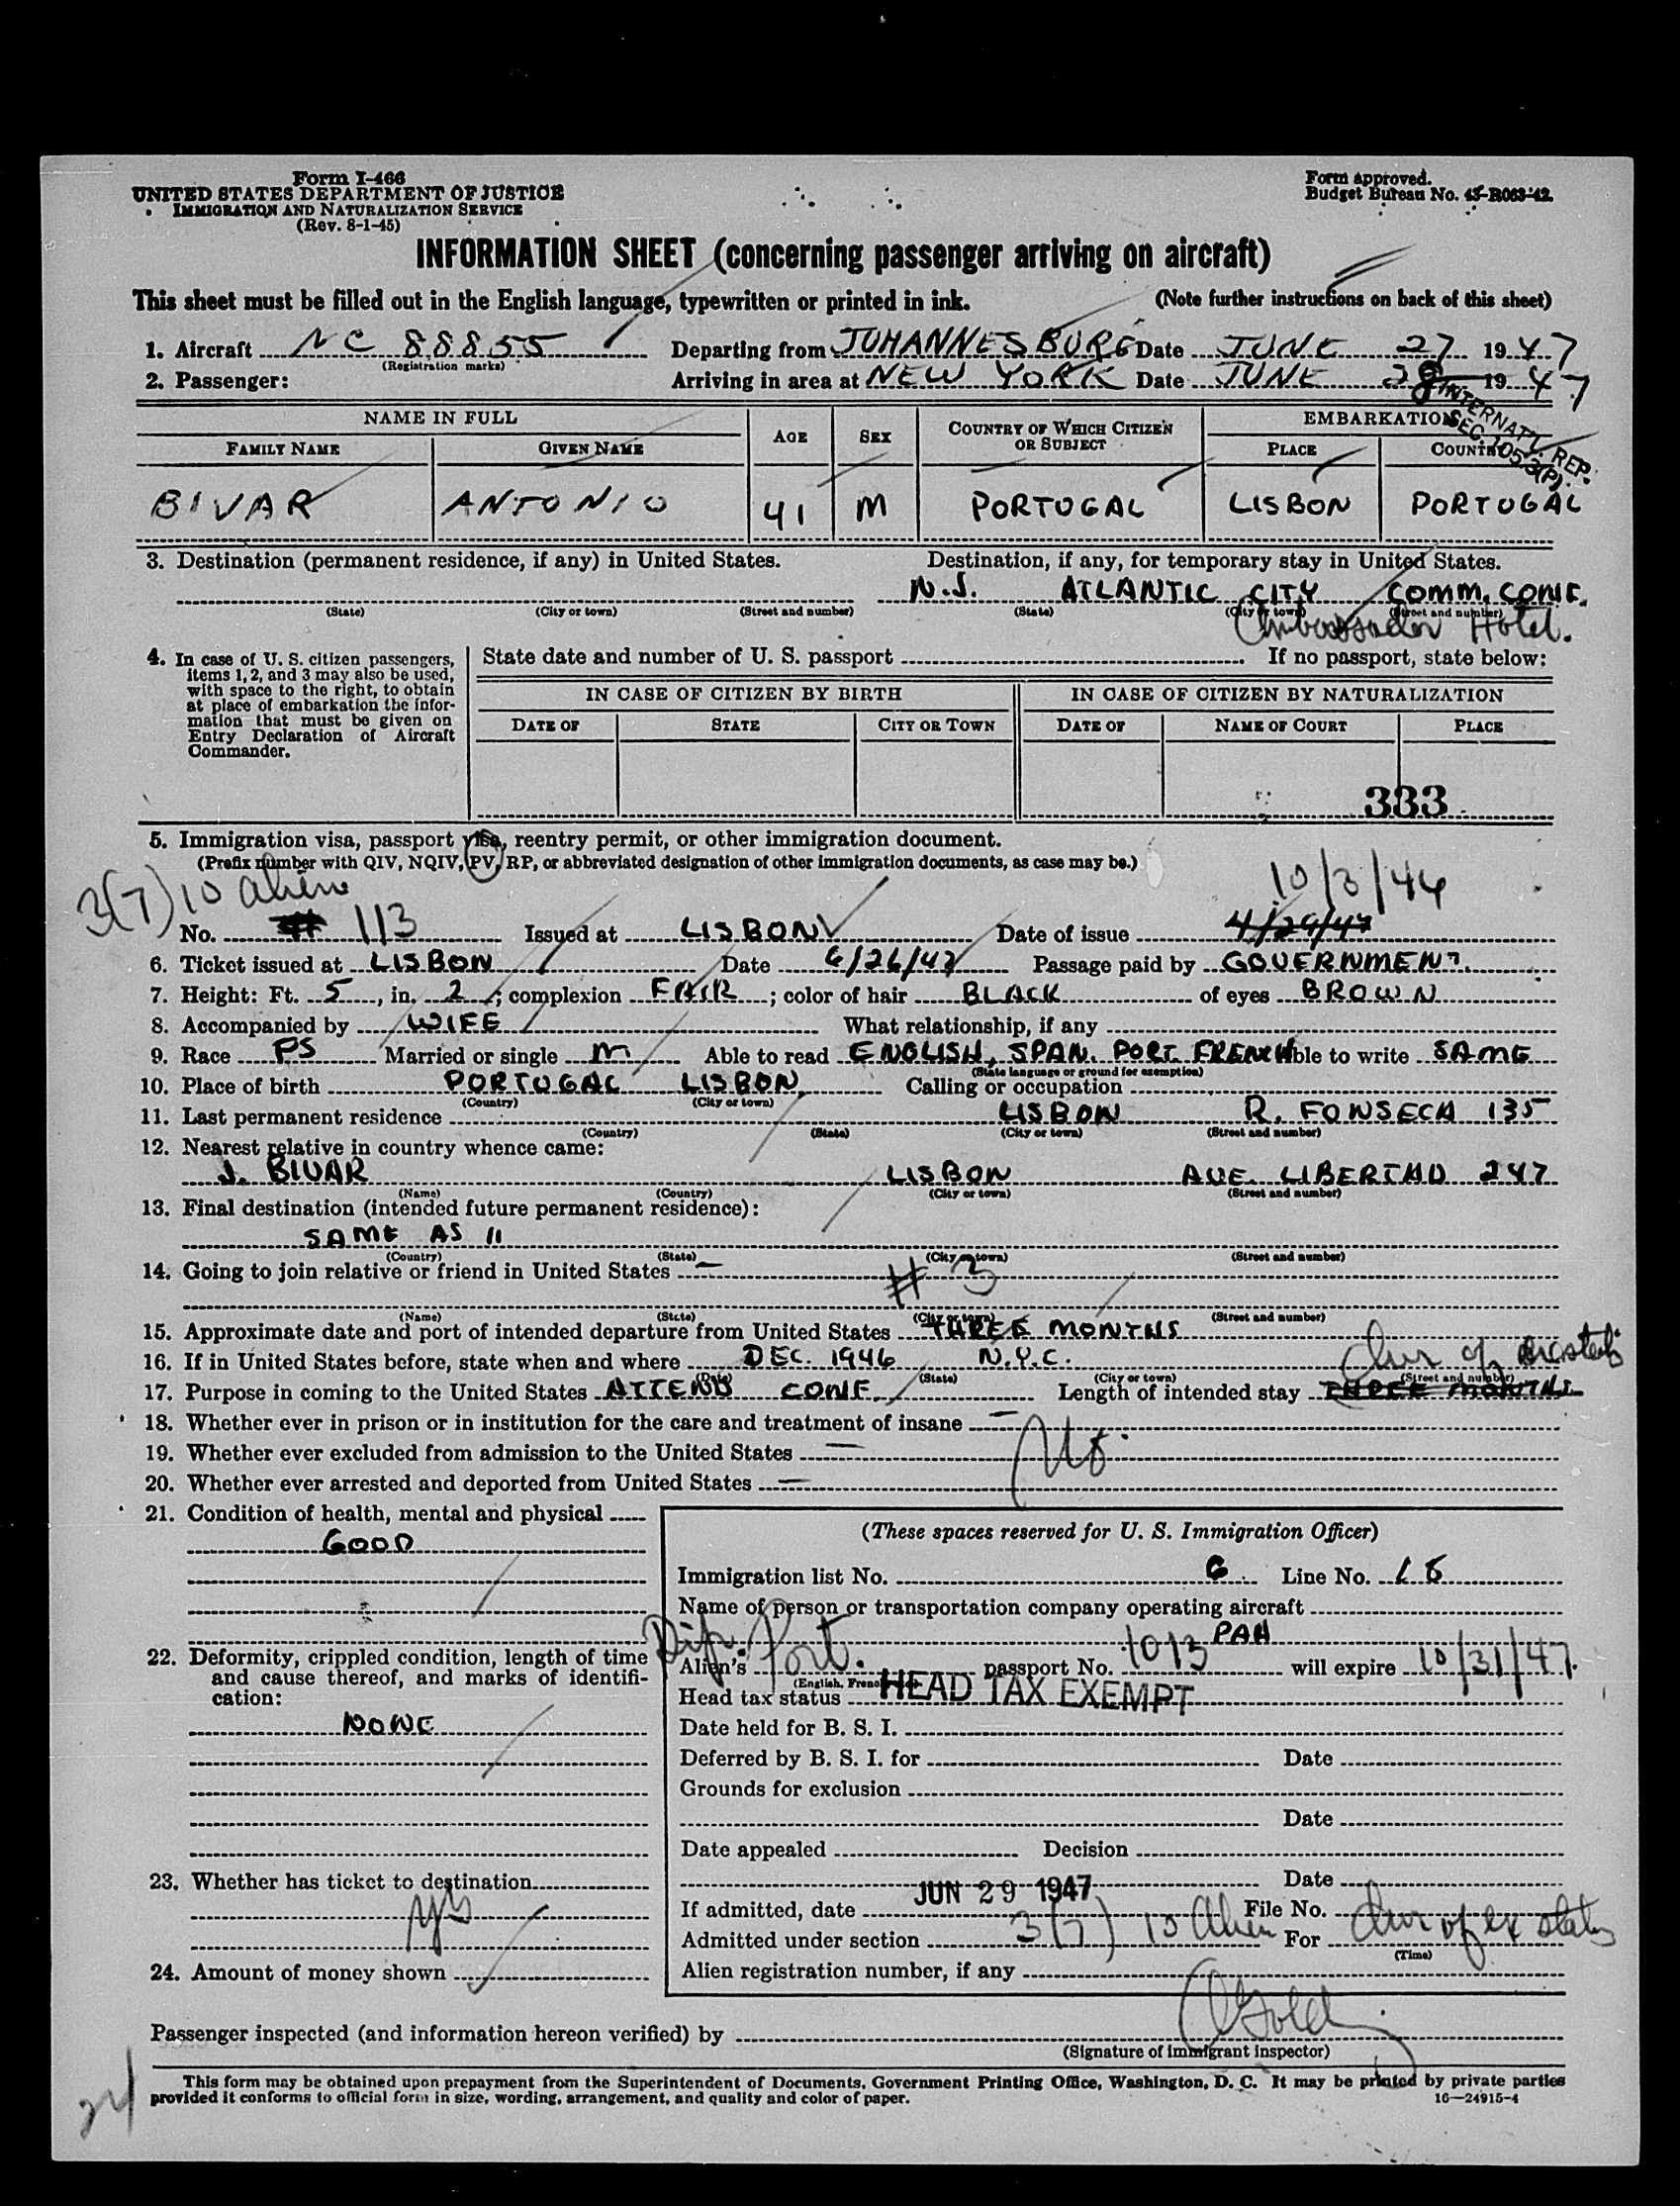 Form I-466
UNITED STATES DEPARTMENT OF JUSTICE
IMMIGRATION AND NATURALIZATION SERVICE
(Rev. 8-1-45)
Form approved.
Budget Bureau No. 43-R063-42.
INFORMATION SHEET (concerning passenger arriving on aircraft)
This sheet must be filled out in the English language, typewritten or printed in ink. (Note further instructions on back of this sheet)
1. Aircraft NC 88855 Departing from JOHANNESBURG Date JUNE 27 1947
(Registration marks)
2. Passenger: Arriving in area at NEW YORK Date JUNE 28 1947
INTERNAT'L. REP.
SEC. 105.3(P).
NAME IN FULL AGE SEX COUNTRY OF WHICH CITIZEN OR SUBJECT EMBARKATION
FAMILY NAME GIVEN NAME PLACE COUNTRY
BIVAR ANTONIO 41 M PORTUGAL LISBON PORTUGAL
3. Destination (permanent residence, if any) in United States. Destination, if any, for temporary stay in United States.
N.J. ATLANTIC CITY COMM. CONF.
(State) (City or town) (Street and number) (State) (City or town) (Street and number)
Ambassador Hotel.
4. In case of U. S. citizen passengers, items 1, 2, and 3 may also be used, with space to the right, to obtain at place of embarkation the information that must be given on Entry Declaration of Aircraft Commander.
State date and number of U. S. passport If no passport, state below:
IN CASE OF CITIZEN BY BIRTH IN CASE OF CITIZEN BY NATURALIZATION
DATE OF STATE CITY OR TOWN DATE OF NAME OF COURT PLACE
333
5. Immigration visa, passport visa, reentry permit, or other immigration document.
(Prefix number with QIV, NQIV, PV, RP, or abbreviated designation of other immigration documents, as case may be.)
3(7) 10 alien 10/3/46
No. 113 Issued at LISBON Date of issue 4/29/47
6. Ticket issued at LISBON Date 6/26/47 Passage paid by GOVERNMENT.
7. Height: Ft. 5, in. 2; complexion FAIR; color of hair BLACK of eyes BROWN
8. Accompanied by WIFE What relationship, if any
9. Race PS Married or single M Able to read ENGLISH, SPAN. PORT. FRENCH Able to write SAME
(State language or ground for exemption)
10. Place of birth PORTUGAL LISBON Calling or occupation
(Country) (City or town)
11. Last permanent residence LISBON R. FONSECA 135
(Country) (State) (City or town) (Street and number)
12. Nearest relative in country whence came:
J. BIVAR LISBON AVE. LIBERTAD 247
(Name) (Country) (City or town) (Street and number)
13. Final destination (intended future permanent residence):
SAME AS 11
(Country) (State) (City or town) (Street and number)
14. Going to join relative or friend in United States —
# 3
(Name) (State) (City or town) (Street and number)
15. Approximate date and port of intended departure from United States THREE MONTHS
16. If in United States before, state when and where DEC. 1946 N.Y.C.
(Date) (State) (City or town) (Street and number)
17. Purpose in coming to the United States ATTEND CONF. Length of intended stay THREE MONTHS
18. Whether ever in prison or in institution for the care and treatment of insane —
19. Whether ever excluded from admission to the United States — No.
20. Whether ever arrested and deported from United States —
21. Condition of health, mental and physical
GOOD
22. Deformity, crippled condition, length of time and cause thereof, and marks of identification:
NONE
23. Whether has ticket to destination
yes
24. Amount of money shown
(These spaces reserved for U. S. Immigration Officer)
Immigration list No. 6 Line No. 18
Name of person or transportation company operating aircraft
PAA
Dip.
Alien's Port. passport No. 1013 will expire 10/31/47.
Head tax status HEAD TAX EXEMPT
Date held for B. S. I.
Deferred by B. S. I. for Date
Grounds for exclusion
Date
Date appealed Decision
Date
If admitted, date JUN 29 1947 File No.
Admitted under section 3(7) 10 Alien For dur of ex status
(Time)
Alien registration number, if any
Passenger inspected (and information hereon verified) by Gold
(Signature of immigrant inspector)
This form may be obtained upon prepayment from the Superintendent of Documents, Government Printing Office, Washington, D. C. It may be printed by private parties
provided it conforms to official form in size, wording, arrangement, and quality and color of paper. 16—24915-4